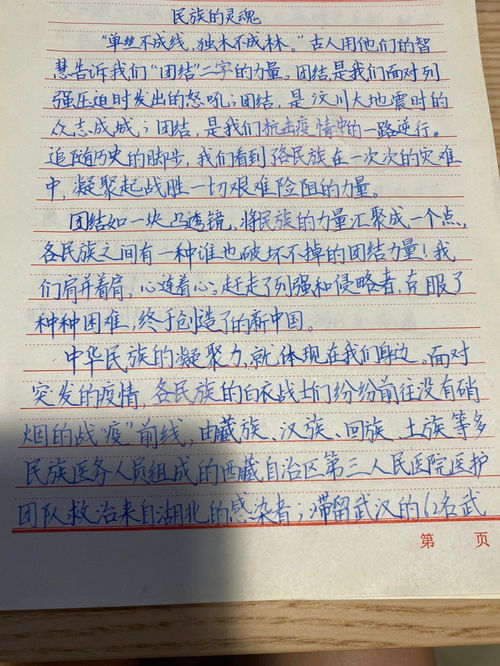 民族的灵魂
“单丝不成线，独木不成林。”古人用他们的智
慧告诉我们“团结”二字的力量。团结，是我们面对列
强压迫时发出的怒吼；团结，是汶川大地震时的
众志成城；团结，是我们抗击疫情中的一路逆行。
追随历史的脚步，我们看到各民族在一次次的灾难
中，凝聚起战胜一切艰难险阻的力量。
团结如一块凸透镜，将民族的力量汇聚成一个点，
各民族之间有一种谁也破坏不掉的团结力量！我
们肩并着肩，心连着心。赶走了列强和侵略者，克服了
种种困难，终于创造了的新中国。
中华民族的凝聚力，就体现在我们身边，面对
突发的疫情，各民族的白衣战士们纷纷前往没有硝
烟的战“疫”前线，由藏族、汉族、回族、土族等多
民族医务人员组成的西藏自治区第三人民医院医护
团队救治来自湖北的感染者；滞留武汉的62名武
第 页